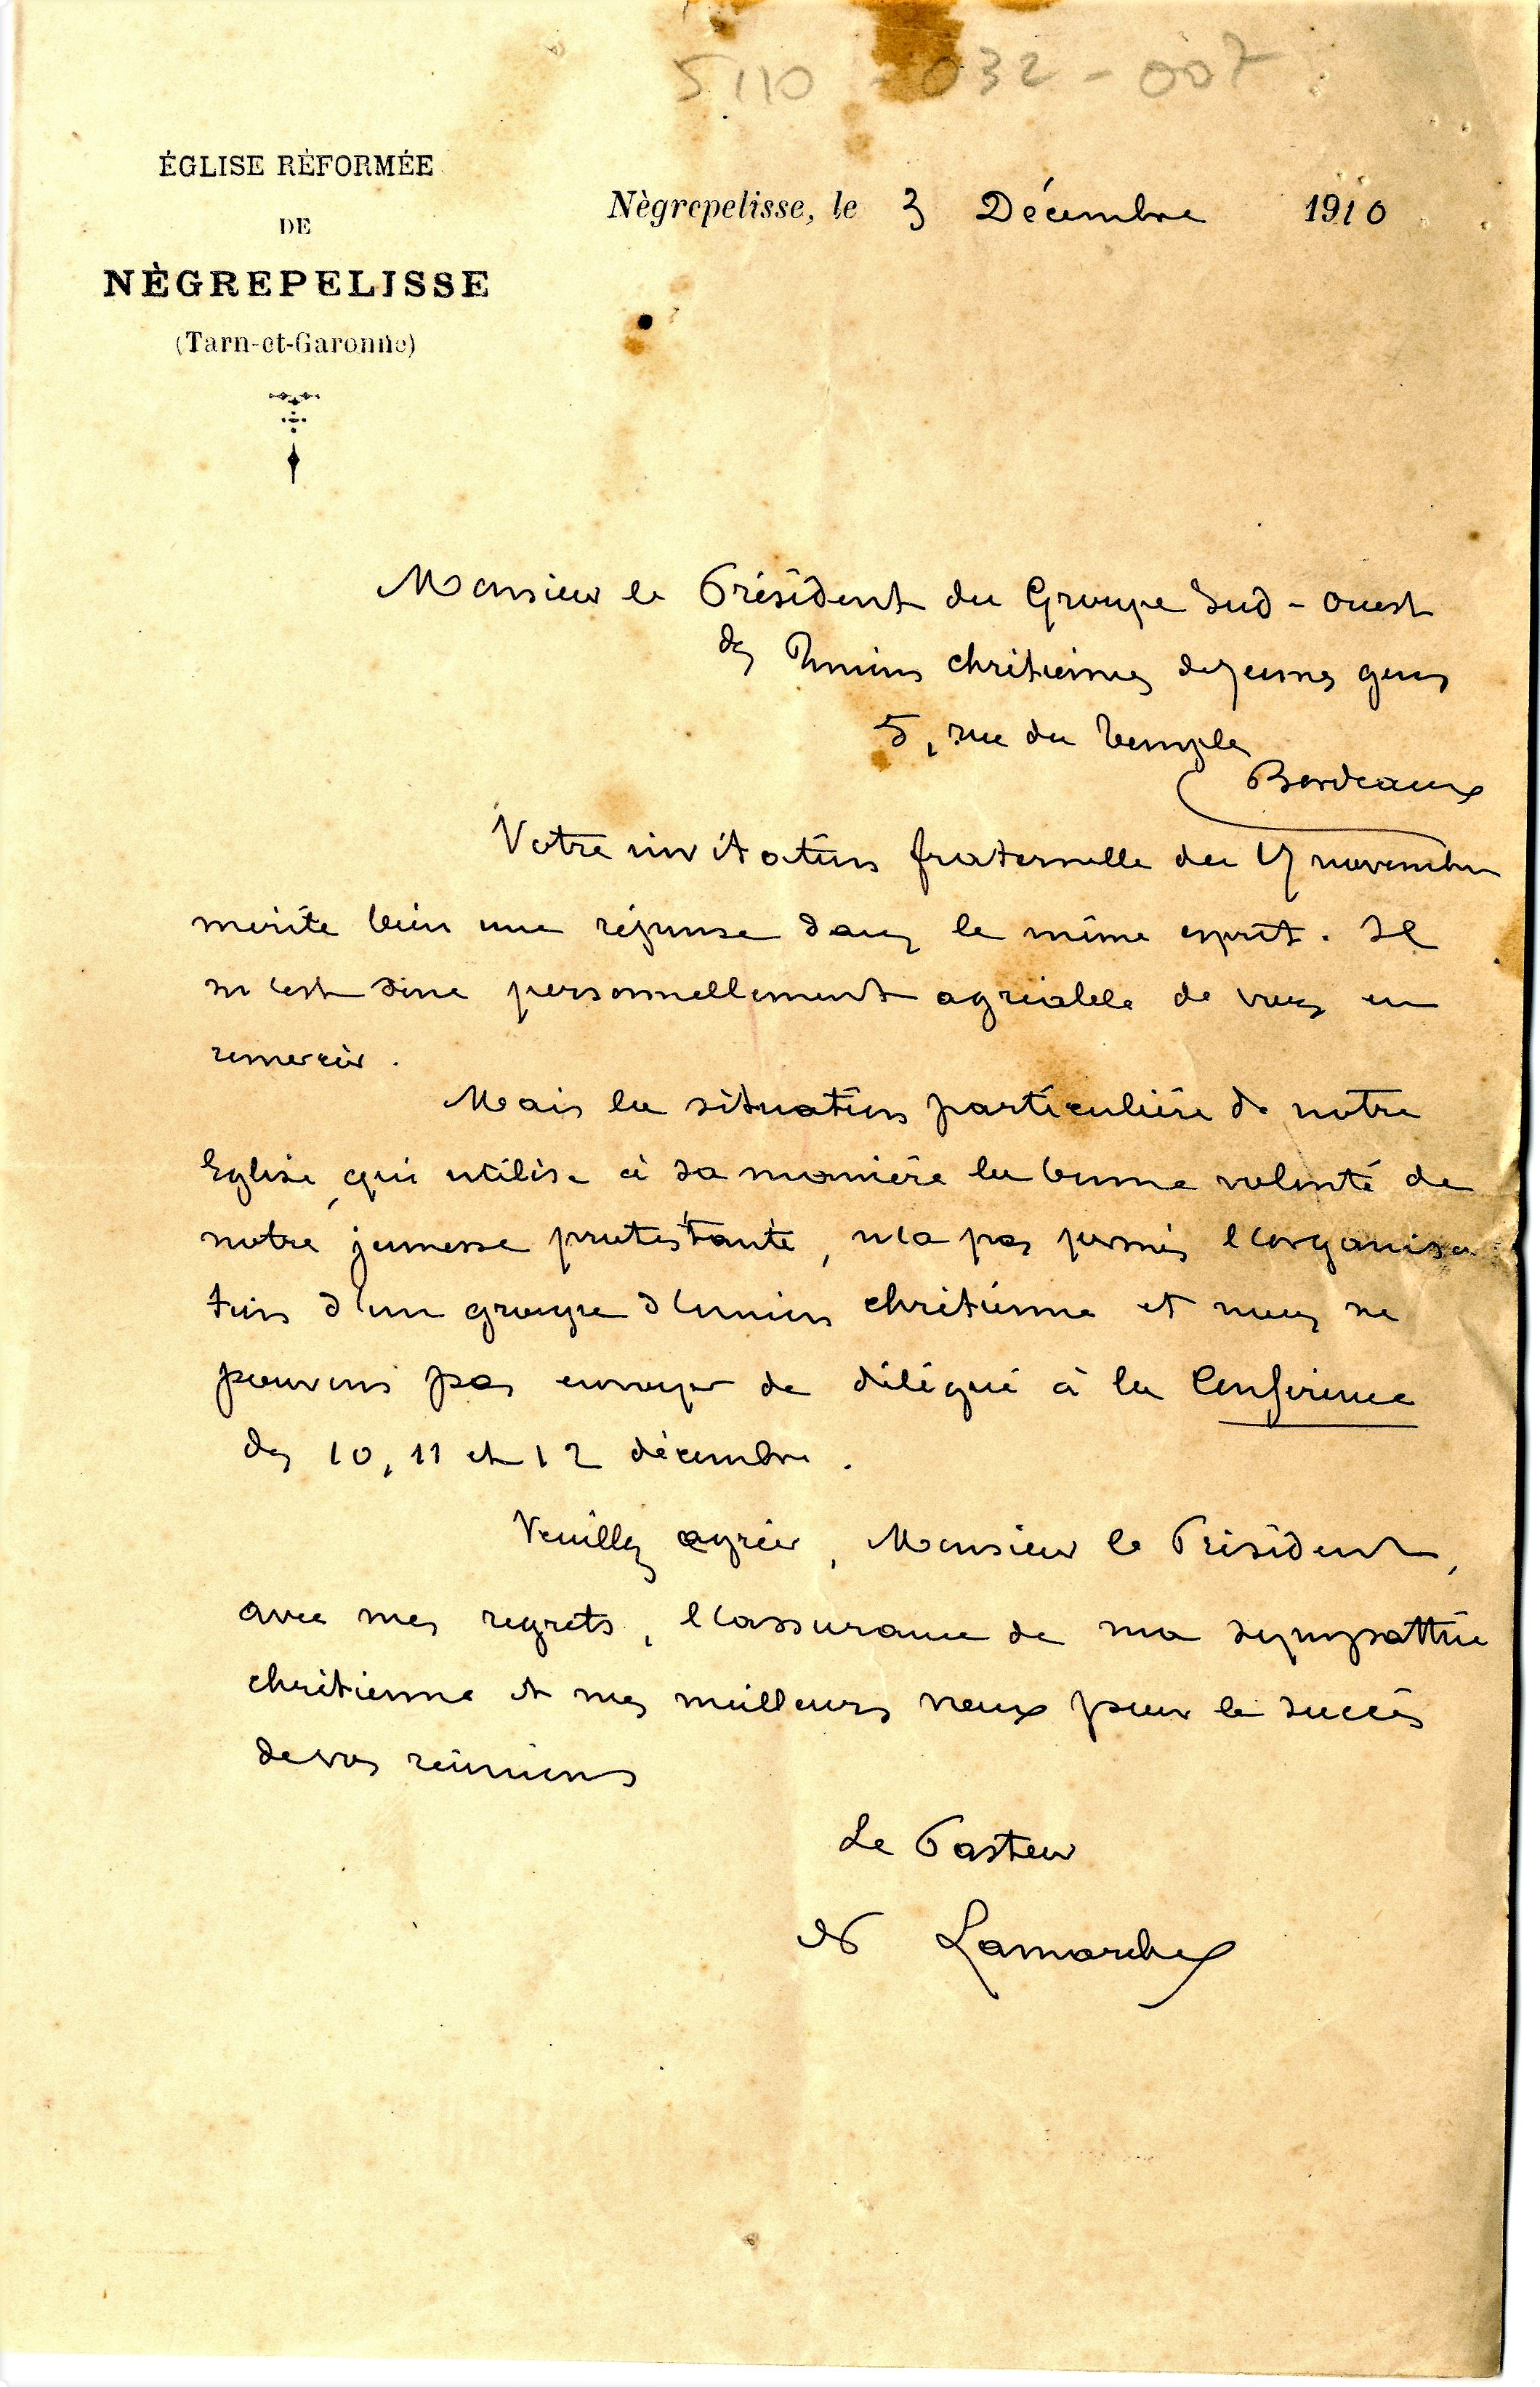 5110 - 032 - 007
ÉGLISE RÉFORMÉE
DE
NÈGREPELISSE
(Tarn-et-Garonne)
Nègrepelisse, le 3 Décembre 1910
Monsieur le Président du Groupe Sud-Ouest
des Unions chrétiennes de jeunes gens
5, rue du Temple
Bordeaux
Votre invitation fraternelle du 17 novembre
mérite bien une réponse dans le même esprit. Il
m'est donc personnellement agréable de vous en
remercier.
Mais la situation particulière de notre
Eglise, qui utilise à sa manière la bonne volonté de
notre jeunesse protestante, n'a pas permis l'organisa
tion d'un groupe d'union chrétienne et nous ne
pouvons pas envoyer de délégué à la Conférence
des 10, 11 et 12 décembre.
Veuillez agréer, Monsieur le Président,
avec mes regrets, l'assurance de ma sympathie
chrétienne et mes meilleurs voeux pour le succès
de vos réunions
Le Pasteur
Lamarche